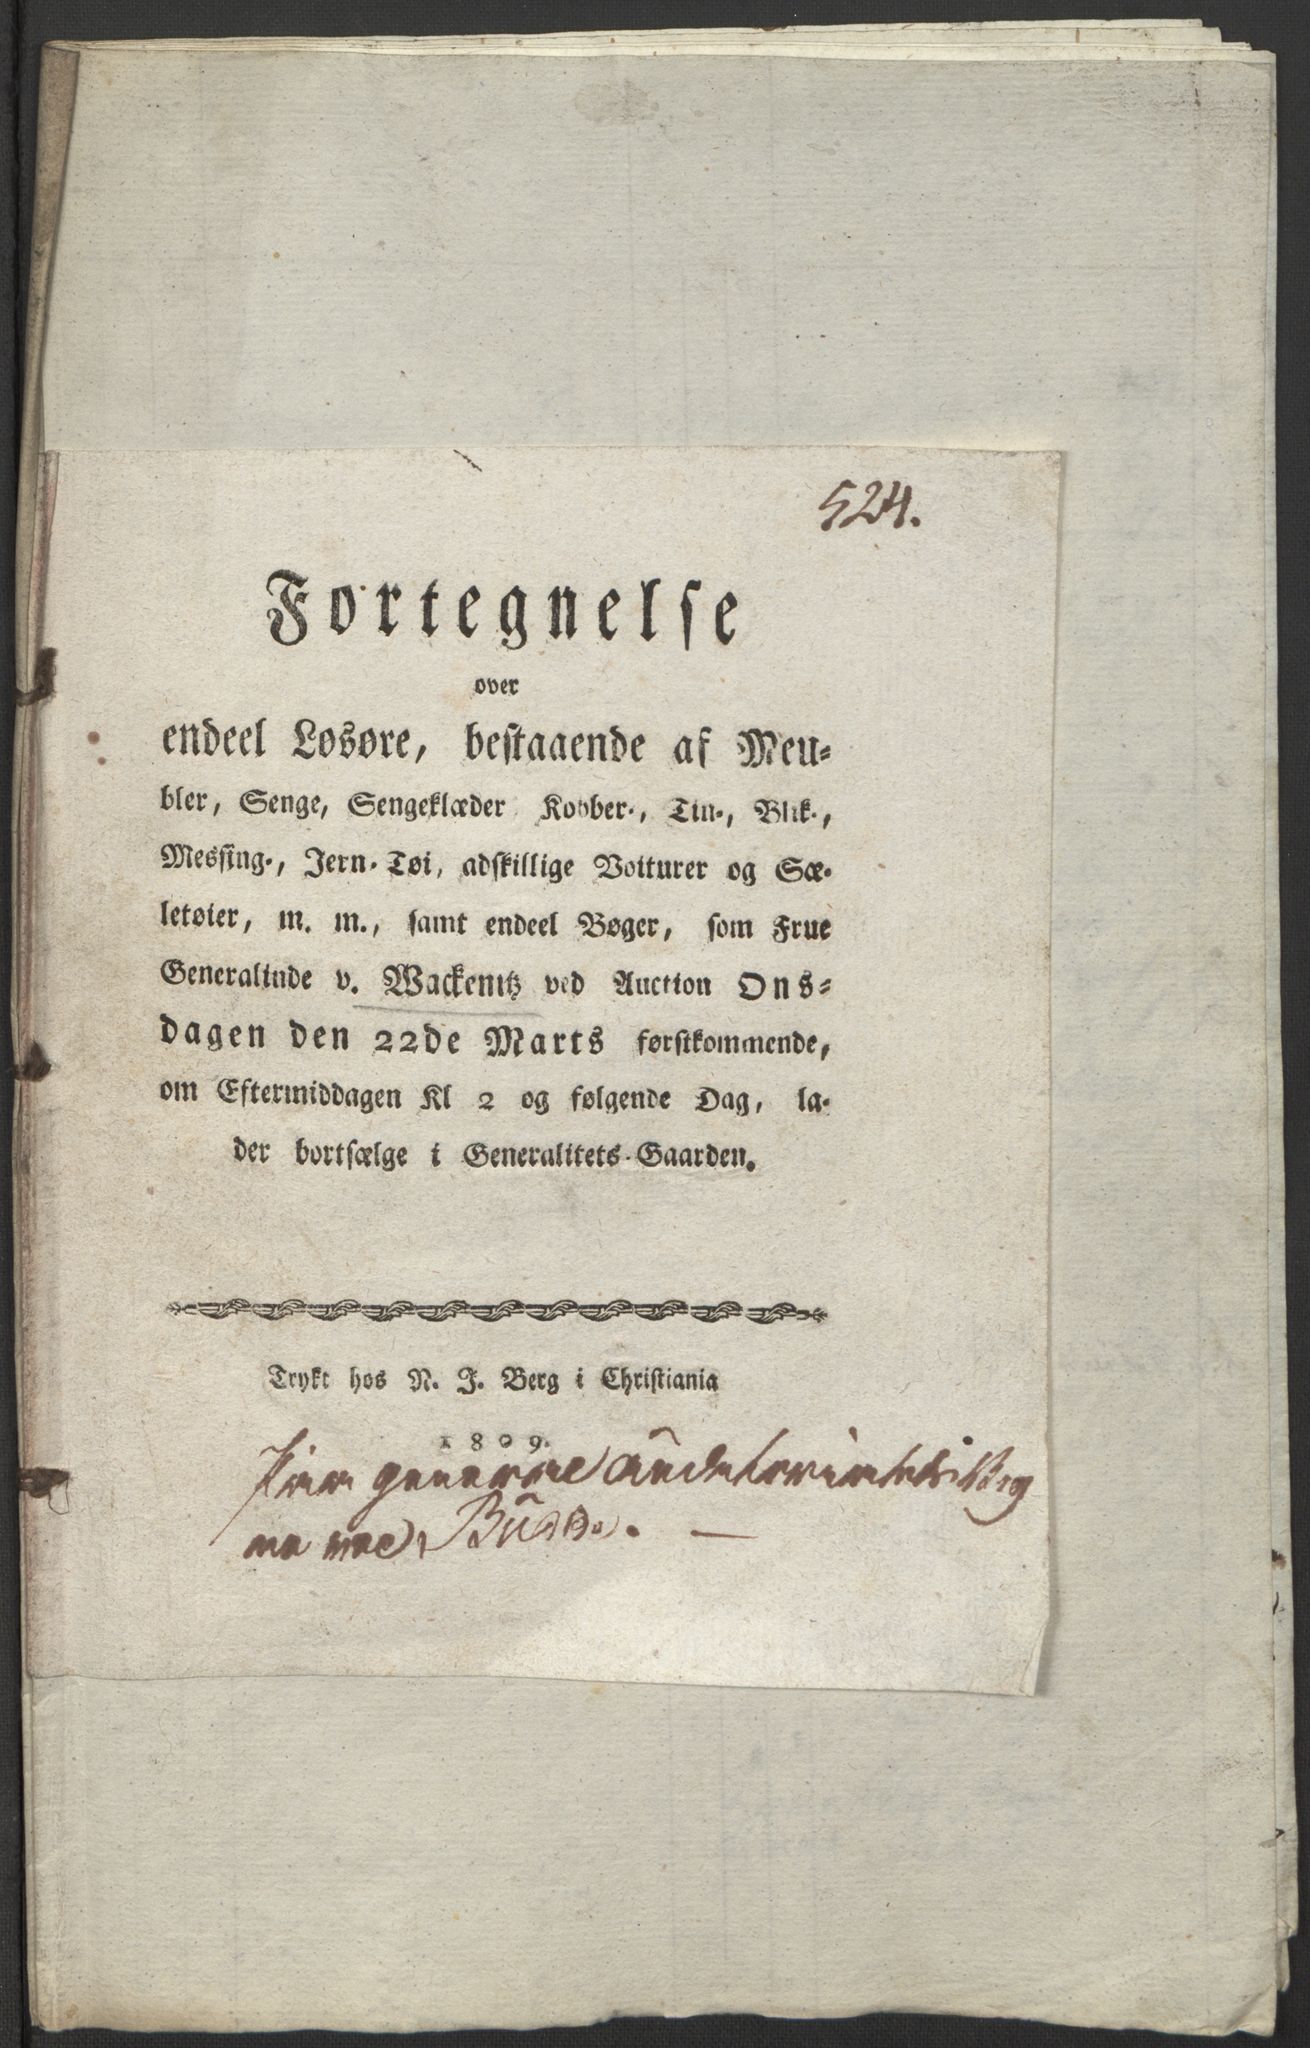 524.
Fortegnelse
over
endeel Løsøre, bestaaende af Meu-
bler, Senge, Sengeklæder Kobber-, Tin-, Blik-,
Messing-, Jern-Tøi, adskillige Voiturer og Sæ-
letøier, m. m., samt endeel Bøger, som Frue
Generalinde v. Wackenitz ved Auction Ons-
dagen den 22de Marts førstkommende,
om Eftermiddagen Kl 2 og følgende Dag, la-
der bortsælge i Generalitets-Gaarden.
Trykt hos N. J. Berg i Christiania
1809.